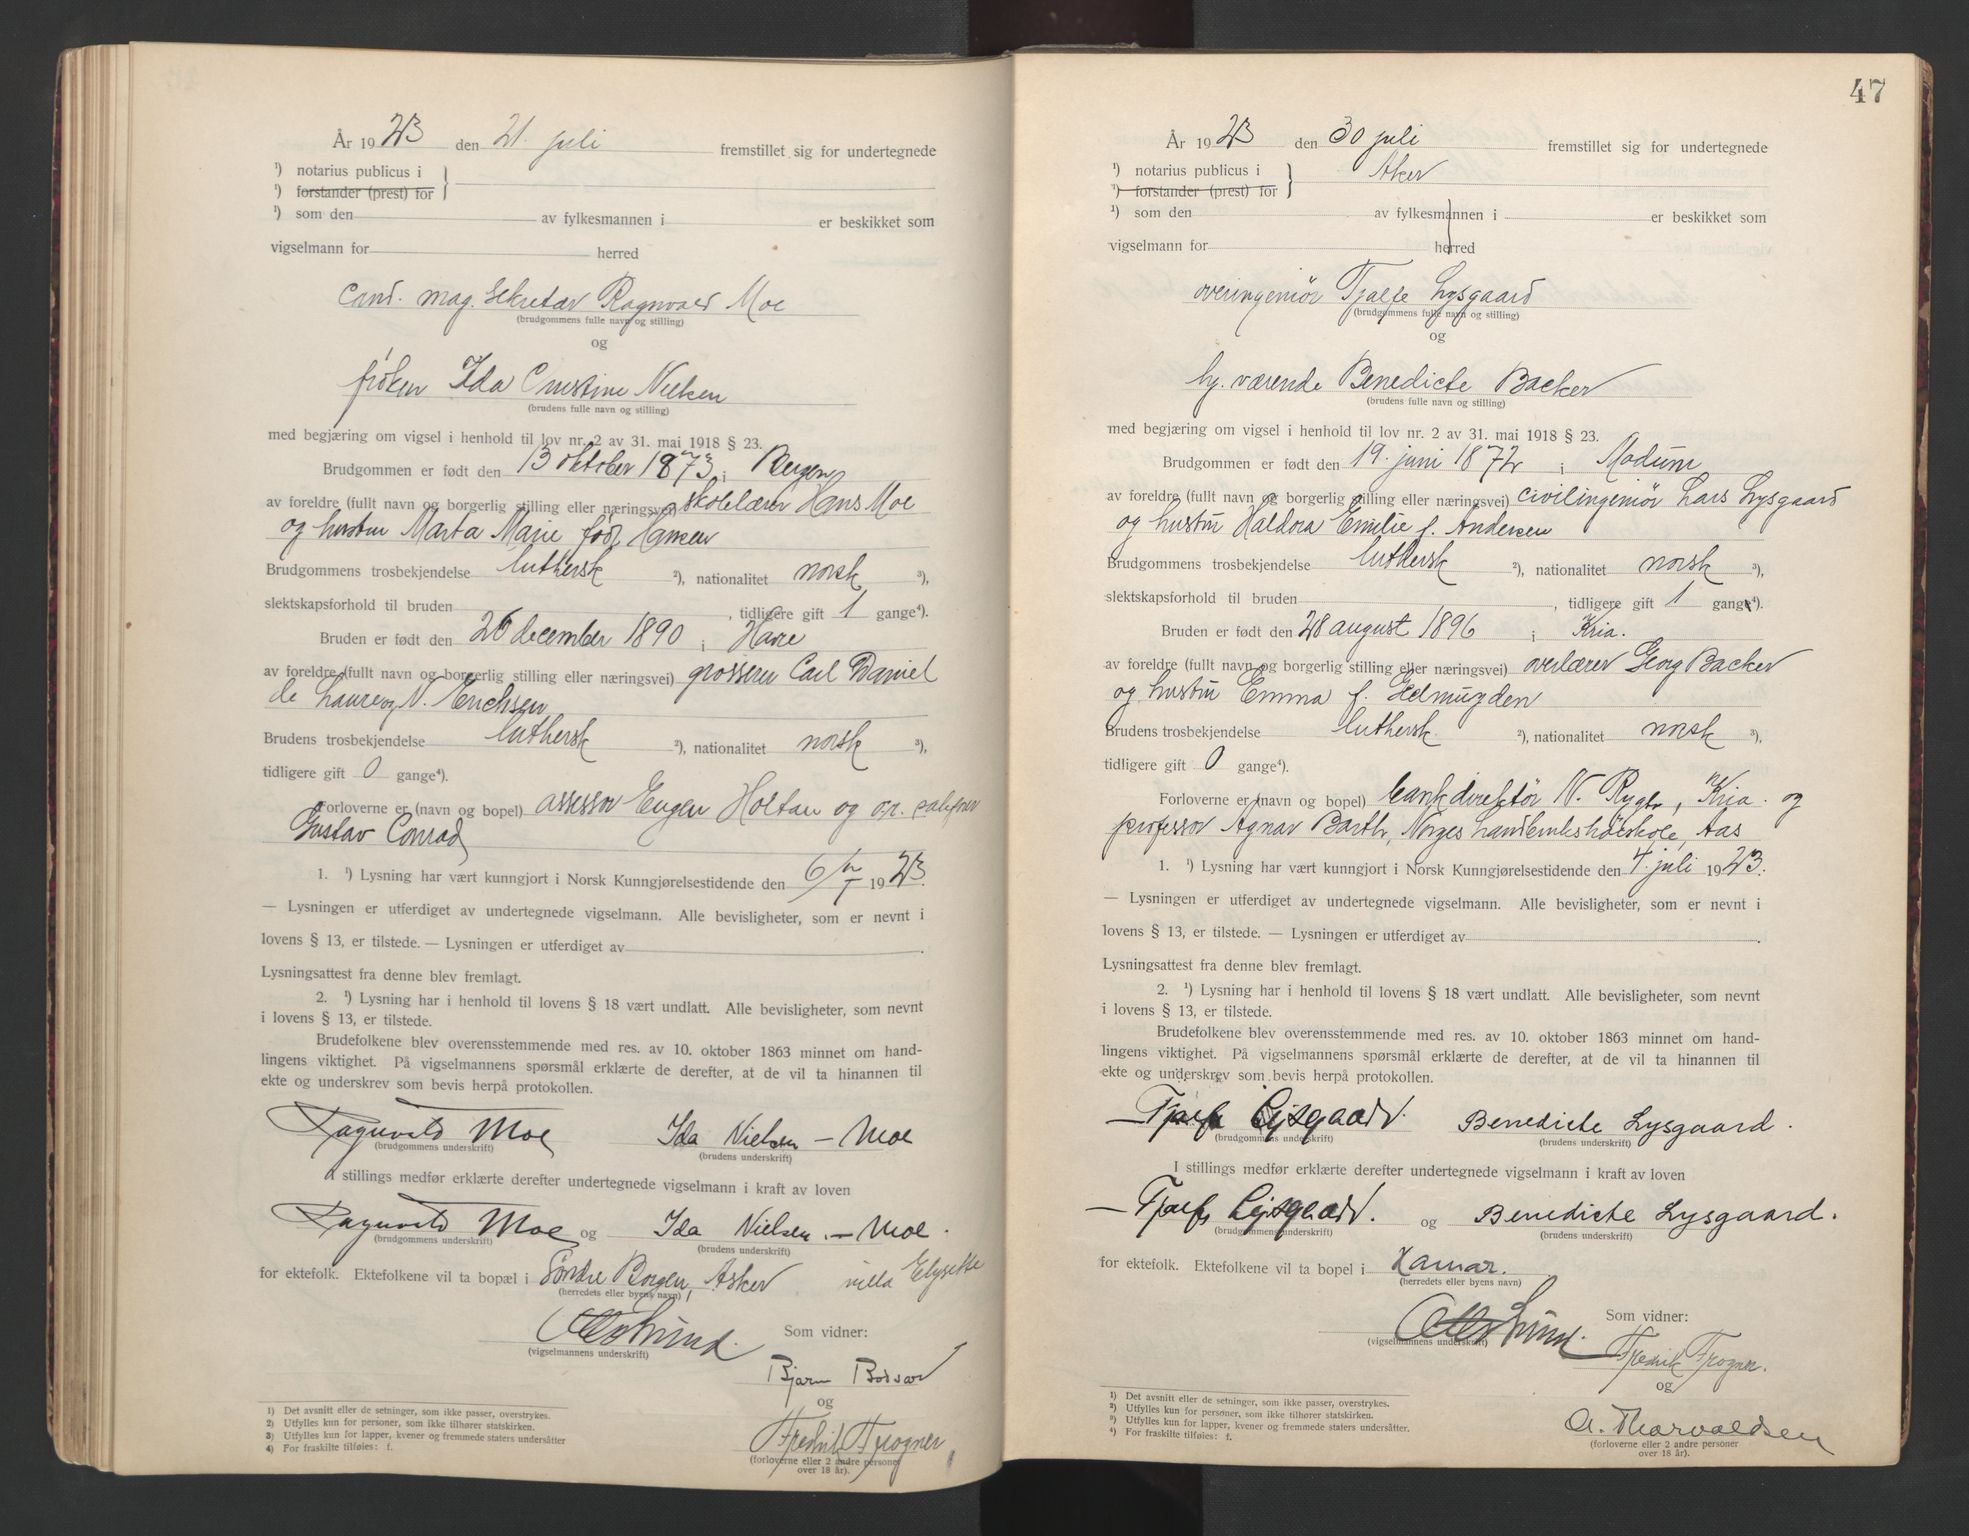 År 1923 den 21. juli fremstillet sig for undertegnede
¹) notarius publicus i
¹) forstander (prest) for
¹) som den av fylkesmannen i er beskikket som
vigselmann for herred
cand. mag. sekretær Ragnvald Moe
(brudgommens fulle navn og stilling)
og
frøken Ida Cristine Nielsen
(brudens fulle navn og stilling)
med begjæring om vigsel i henhold til lov nr. 2 av 31. mai 1918 § 23.
Brudgommen er født den 13 oktober 1873 i Bergen
av foreldre (fullt navn og borgerlig stilling eller næringsvei) skolelærer Hans Moe
og hustru Marta Marie født Hansen
Brudgommens trosbekjendelse luthersk ²), nationalitet norsk ³),
slektskapsforhold til bruden , tidligere gift 1 gange⁴).
Bruden er født den 26 december 1890 i
av foreldre (fullt navn og borgerlig stilling eller næringsvei) grosserer Carl Daniel
de N. Erichsen
Brudens trosbekjendelse luthersk ²), nationalitet norsk ³),
tidligere gift 0 gange⁴).
Forloverne er (navn og bopel) assessor Eugen Holtan og
Gustav Conrad
1. ¹) Lysning har vært kunngjort i Norsk Kunngjørelsestidende den 1923.
— Lysningen er utferdiget av undertegnede vigselmann. Alle bevisligheter, som er nevnt i
lovens § 13, er tilstede. — Lysningen er utferdiget av
Lysningsattest fra denne blev fremlagt.
2. ¹) Lysning har i henhold til lovens § 18 vært undlatt. Alle bevisligheter, som nevnt
i lovens § 13, er tilstede.
Brudefolkene blev overensstemmende med res. av 10. oktober 1863 minnet om hand-
lingens viktighet. På vigselmannens spørsmål erklærte de derefter, at de vil ta hinannen til
ekte og underskrev som bevis herpå protokollen.
Ragnvald Moe Ida Nielsen – Moe
(brudgommens underskrift) (brudens underskrift)
I stillings medfør erklærte derefter undertegnede vigselmann i kraft av loven
Ragnvald Moe og Ida Nielsen. – Moe.
(brudgommens underskrift) (brudens underskrift)
for ektefolk. Ektefolkene vil ta bopæl i Søndre Borgen, Asker villa Elysette
(herredets eller byens navn)
Otto Lund. Som vidner:
(vigselmannens underskrift)
Bjarn
og
Fredrik Frogner
(forloverne eller 2 andre personer
over 18 år).
1) Det avsnitt eller de setninger, som ikke passer, overstrykes.
2) Utfylles kun for personer, som ikke tilhører statskirken.
3) Utfylles kun for lapper, kvener og fremmede staters undersåtter
4) For fraskilte tilføies: f.
47
År 1923 den 30 juli fremstillet sig for undertegnede
¹) notarius publicus i Aker
¹) forstander (prest) for
¹) som den av fylkesmannen i er beskikket som
vigselmann for herred
overingeniør Tjalfe Lysgaard
(brudgommens fulle navn og stilling)
og
hj. værende Benedicte Backer
(brudens fulle navn og stilling)
med begjæring om vigsel i henhold til lov nr. 2 av 31. mai 1918 § 23.
Brudgommen er født den 19. juni 1872 i Modum
av foreldre (fullt navn og borgerlig stilling eller næringsvei) civilingeniør Lars Lysgaard
og hustru Haldora Emilie f. Andersen
Brudgommens trosbekjendelse luthersk ²), nationalitet norsk ³),
slektskapsforhold til bruden , tidligere gift 1 gang⁴).
Bruden er født den 28 august 1896 i Kria.
av foreldre (fullt navn og borgerlig stilling eller næringsvei) overlærer Georg Backer
og hustru Emma f. Helmugden
Brudens trosbekjendelse luthersk. ²), nationalitet norsk ³),
tidligere gift 0 gange⁴).
Forloverne er (navn og bopel) bankdirektør N. Rygh, Kria. og
professor Agnar Barth, Norges Landbrukshøiskole, Aas
1. ¹) Lysning har vært kunngjort i Norsk Kunngjørelsestidende den 4. juli 1923.
— Lysningen er utferdiget av undertegnede vigselmann. Alle bevisligheter, som er nevnt i
lovens § 13, er tilstede. — Lysningen er utferdiget av
Lysningsattest fra denne blev fremlagt.
2. ¹) Lysning har i henhold til lovens § 18 vært undlatt. Alle bevisligheter, som nevnt
i lovens § 13, er tilstede.
Brudefolkene blev overensstemmende med res. av 10. oktober 1863 minnet om hand-
lingens viktighet. På vigselmannens spørsmål erklærte de derefter, at de vil ta hinannen til
ekte og underskrev som bevis herpå protokollen.
Tjalfe Lysgaard. Benedicte Lysgaard.
(brudgommens underskrift) (brudens underskrift)
I stillings medfør erklærte derefter undertegnede vigselmann i kraft av loven
Tjalfe Lysgaard. og Benedicte Lysgaard.
(brudgommens underskrift) (brudens underskrift)
for ektefolk. Ektefolkene vil ta bopel i Hamar.
(herredets eller byens navn)
Otto Lund. Som vidner:
(vigselmannens underskrift)
Fredrik Frogner.
og
A. Thorvaldsen
(forloverne eller 2 andre personer
over 18 år).
1) Det avsnitt eller de setninger, som ikke passer, overstrykes.
2) Utfylles kun for personer, som ikke tilhører statskirken.
3) Utfylles kun for lapper, kvener og fremmede staters undersåtter.
4) For fraskilte tilføies: f.